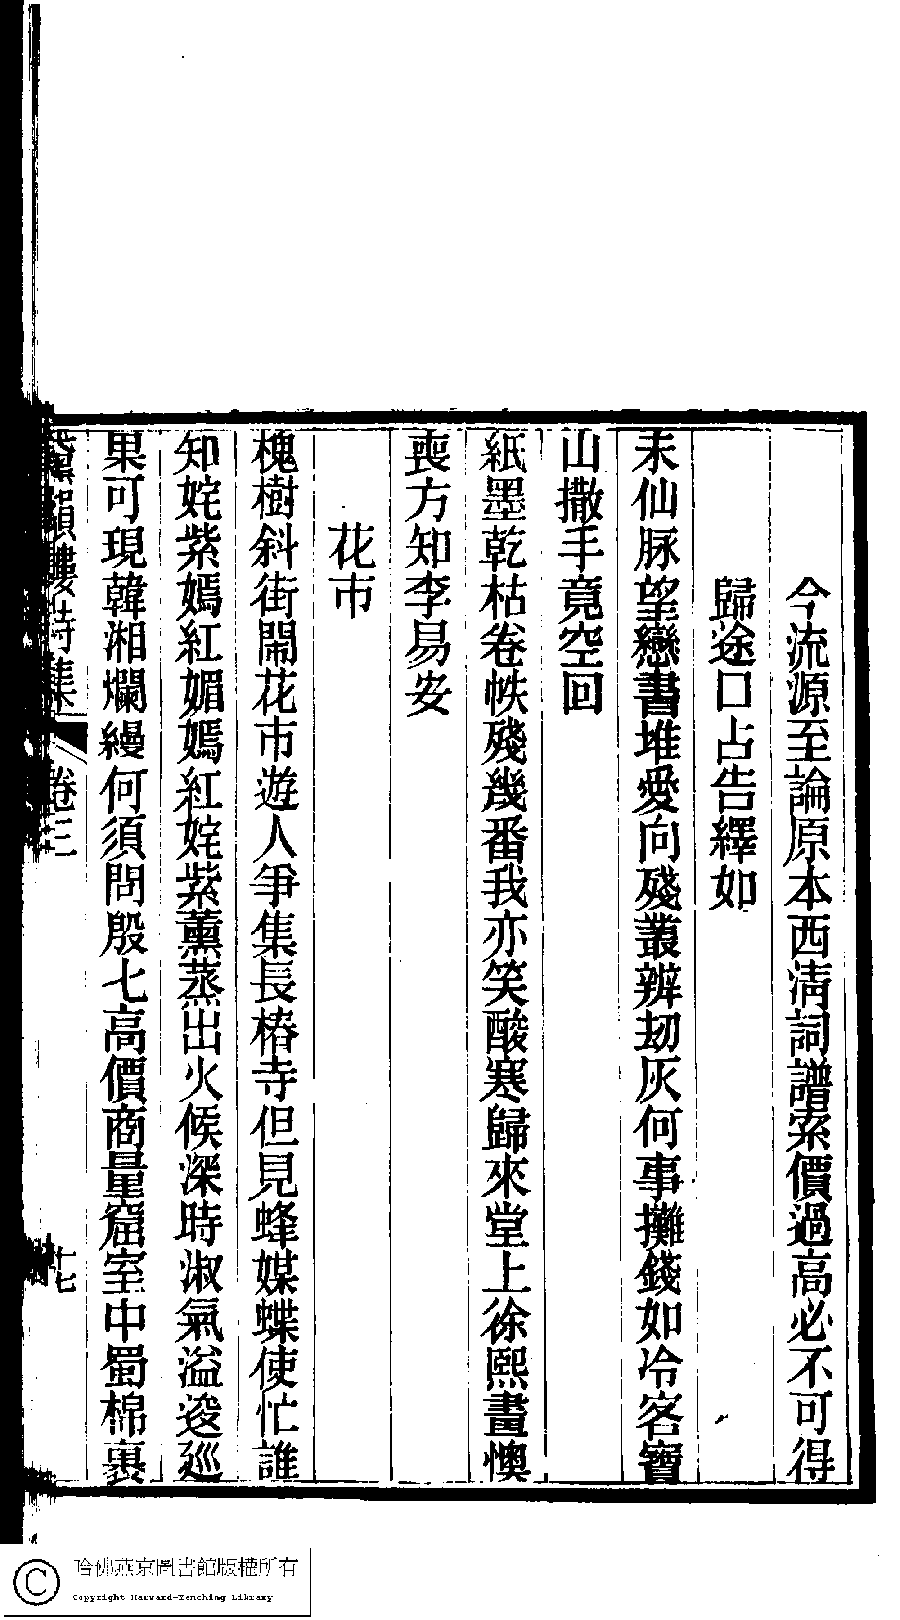 今流源至論原本西淸詞譜索價過高必不可得
歸途口占告繹如
未仙脉望戀書堆愛向殘叢辨刧灰何事攤錢如冷客寶
山撒手竟空回
紙墨乾枯卷帙殘幾番我亦笑酸寒歸來堂上徐熙畫懊
喪方知李易安
花市
槐樹斜街閙花市遊人爭集長椿寺但見蜂媒蝶使忙誰
知姹紫嫣紅媚嫣紅姹紫薰蒸出火候深時淑氣溢逡廵
果可現韓湘爛縵何須問殷七高價商量窟室中蜀棉裹
韻樓詩集
卷三
十七
哈佛燕京圖書館版權所有
Copyright Harvard-Yenching Library